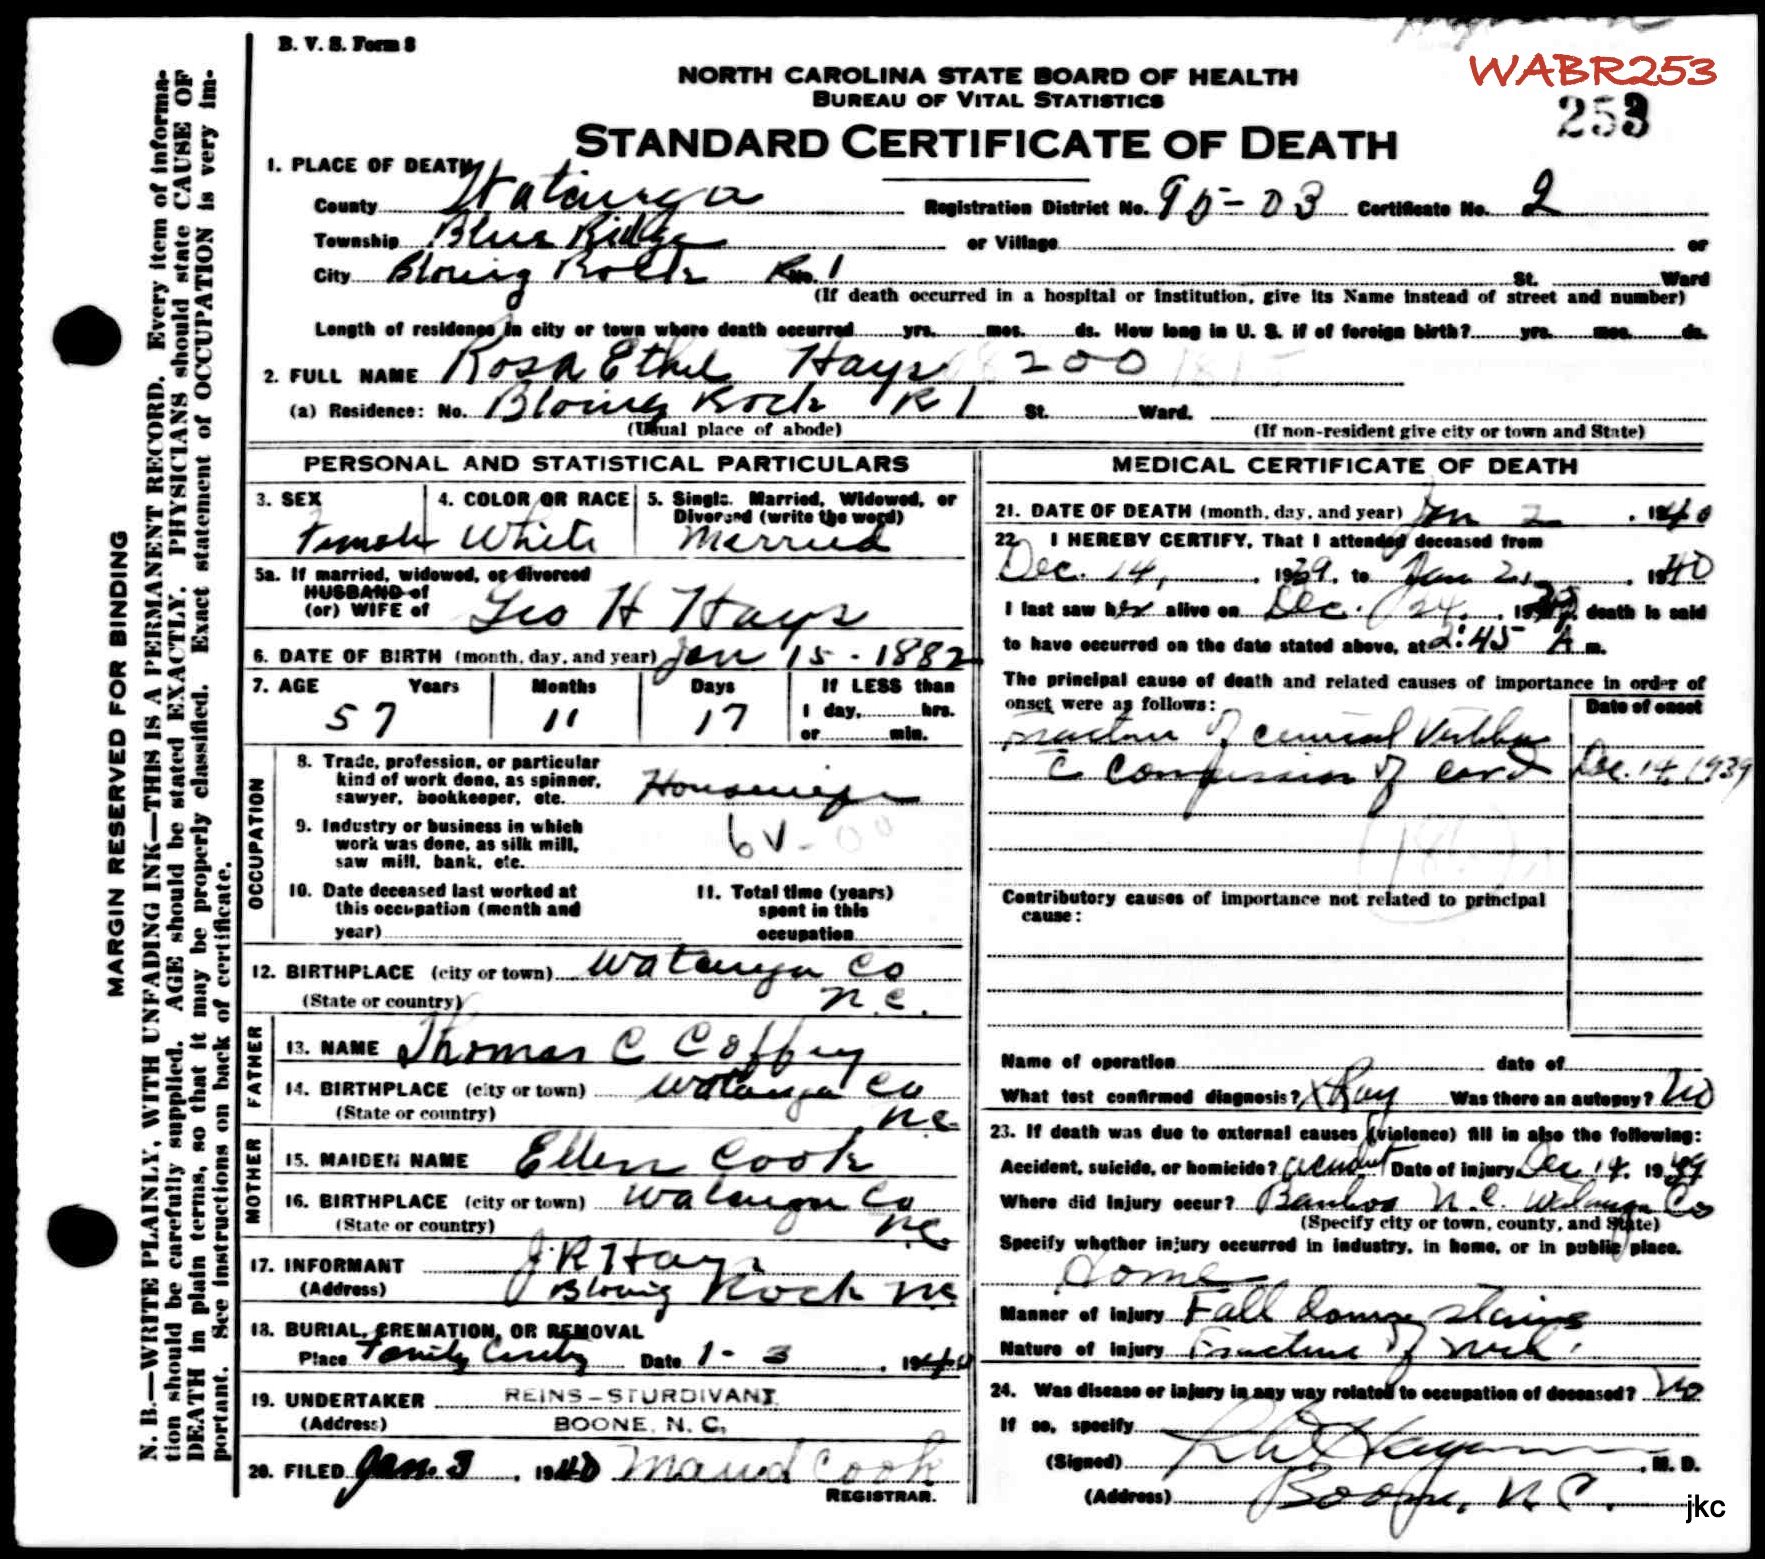 B. V. S. Form 8
WABR253
253
NORTH CAROLINA STATE BOARD OF HEALTH
BUREAU OF VITAL STATISTICS
STANDARD CERTIFICATE OF DEATH
1. PLACE OF DEATH
County Watauga Registration District No. 95-03 Certificate No. 2
Township Blue Ridge or Village or
City Bloing Rock R No. 1 St. Ward
(If death occurred in a hospital or institution, give its Name instead of street and number)
Length of residence in city or town where death occurred yrs. mos. ds. How long in U. S. if of foreign birth? yrs. mos. ds.
2. FULL NAME Rosa Ethel Hays 200
(a) Residence: No. Bloing Rock R 1 St. Ward.
(Usual place of abode) (If non-resident give city or town and State)
PERSONAL AND STATISTICAL PARTICULARS
3. SEX 4. COLOR OR RACE 5. Single, Married, Widowed, or
Divorced (write the word)
Female White Married
5a. If married, widowed, or divorced
HUSBAND of
(or) WIFE of Geo H Hays
6. DATE OF BIRTH (month, day, and year) Jan 15 - 1882
7. AGE Years Months Days If LESS than
57 11 17 1 day, hrs.
or min.
OCCUPATION
8. Trade, profession, or particular
kind of work done, as spinner,
sawyer, bookkeeper, etc. Housewife
9. Industry or business in which
work was done, as silk mill,
saw mill, bank, etc.
10. Date deceased last worked at
this occupation (month and
year)
11. Total time (years)
spent in this
occupation
12. BIRTHPLACE (city or town) Watauga Co
(State or country) N.C.
FATHER
13. NAME Thomas C Coffey
14. BIRTHPLACE (city or town) Watauga Co
(State or country) N.C.
MOTHER
15. MAIDEN NAME Ellen Cook
16. BIRTHPLACE (city or town) Watauga Co
(State or country) N.C.
17. INFORMANT J. R Hays
(Address) Bloing Rock N.C.
18. BURIAL, CREMATION, OR REMOVAL
Place Family Date 1-3, 1940
19. UNDERTAKER REINS-STURDIVANT
(Address) BOONE, N. C.
20. FILED Jan. 3, 1940 Maud Cook
REGISTRAR.
MEDICAL CERTIFICATE OF DEATH
21. DATE OF DEATH (month, day, and year) Jan 2, 1940
22. I HEREBY CERTIFY, That I attended deceased from
Dec. 14, 1939, to Jan 2, 1940
I last saw her alive on Dec. 24, 1939, death is said
to have occurred on the date stated above, at 2:45 A m.
The principal cause of death and related causes of importance in order of
onset were as follows: Date of onset
Fracture of cervical Vertebra
c Compression of cord Dec. 14, 1939
Contributory causes of importance not related to principal
cause:
Name of operation date of
What test confirmed diagnosis? XRay Was there an autopsy? No
23. If death was due to external causes (violence) fill in also the following:
Accident, suicide, or homicide? accident Date of injury Dec. 14, 1939
Where did injury occur? Bamboo N.C. Watauga Co
(Specify city or town, county, and State)
Specify whether injury occurred in industry, in home, or in public place.
Home
Manner of injury Fall down stairs
Nature of injury Fracture of neck
24. Was disease or injury in any way related to occupation of deceased? No
If so, specify
(Signed) M. D.
(Address) Boone, N.C.
jkc
MARGIN RESERVED FOR BINDING
N. B.—WRITE PLAINLY, WITH UNFADING INK—THIS IS A PERMANENT RECORD. Every item of informa-
tion should be carefully supplied. AGE should be stated EXACTLY. PHYSICIANS should state CAUSE OF
DEATH in plain terms, so that it may be properly classified. Exact statement of OCCUPATION is very im-
portant. See instructions on back of certificate.